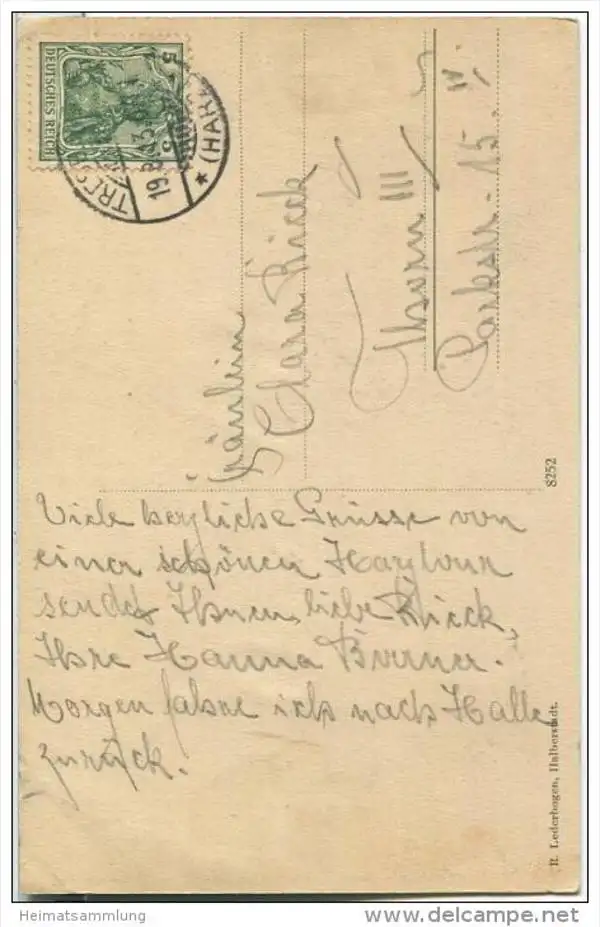 5
DEUTSCHES REICH
TRESEBURG
19.8.13
(HARZ)
Fräulein
Clara Rieck
Thorn III
Parkstr. 15. IV.
Viele herzliche Grüsse von
einer schönen Harztour
sendet Ihnen, liebe Rieck,
Ihre Hanna
Morgen fahre ich nach Halle
zurück.
8252
R. Lederbogen, Halberstadt.
Heimatsammlung
www.delcampe.net